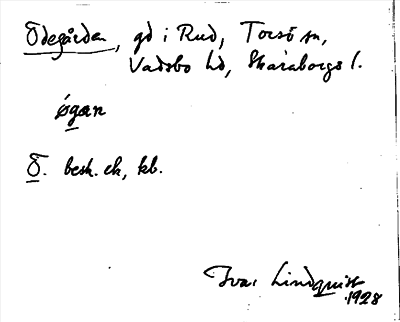 Ödegården, gd i Rud, Torsö sn,
Vadsbo hd, Skaraborgs l.
ö́gan
Ö. besk. ek, kb.
Ivar Lindquist
1928